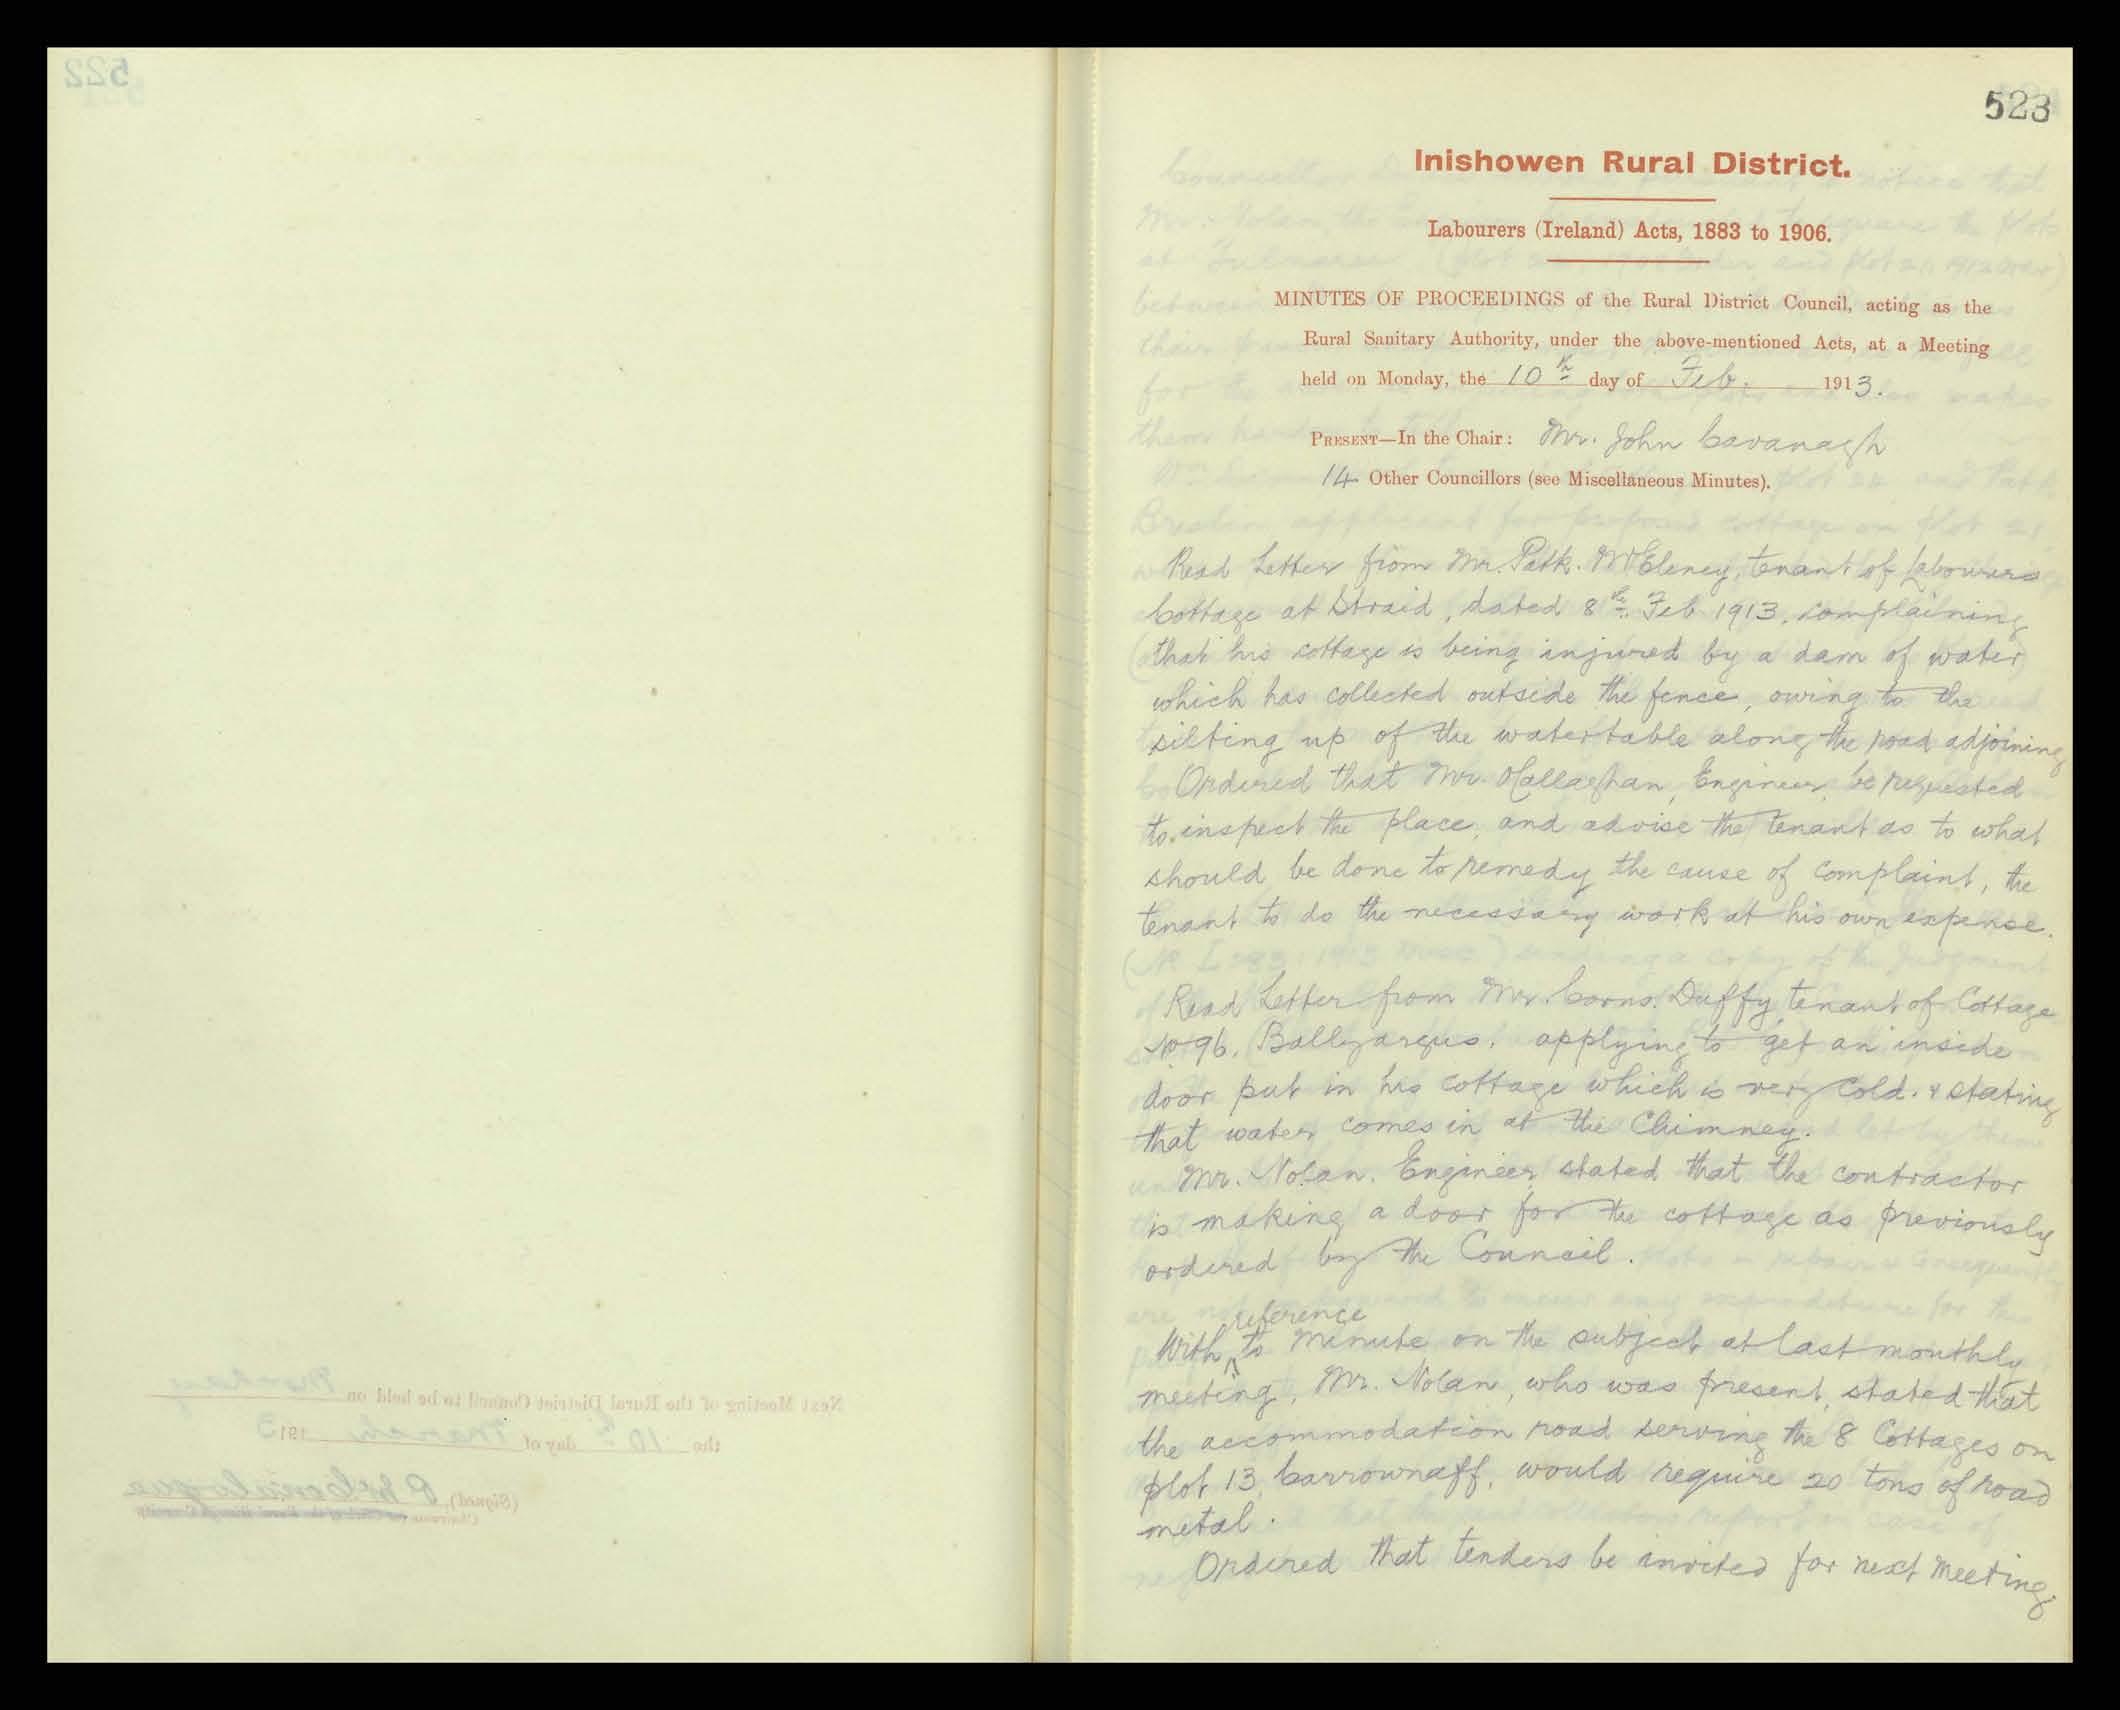 522
523
Inishowen Rural District.
Labourers (Ireland) Acts, 1883 to 1906.
MINUTES OF PROCEEDINGS of the Rural District Council, acting as the
Rural Sanitary Authority, under the above-mentioned Acts, at a Meeting
held on Monday, the 10th day of Feb. 1913.
PRESENT—In the Chair: Mr. John Cavanagh
14 Other Councillors (see Miscellaneous Minutes).
Read Letter from Mr. Patk. McEleney, tenant of Labourers
Cottage at Straid, dated 8th Feb 1913, complaining
that his cottage is being injured by a dam of water
which has collected outside the fence, owing to the
silting up of the watertable along the road adjoining
Ordered that Mr. O'Callaghan, Engineer, be requested
to inspect the place, and advise the tenant as to what
should be done to remedy the cause of complaint, the
tenant to do the necessary work at his own expense.
Read Letter from Mr. Corns. Duffy, tenant of Cottage
No 96, Ballyargus, applying to get an inside
door put in his cottage which is very cold. & stating
that water comes in at the Chimney.
Mr. Nolan. Engineer, stated that the contractor
is making a door for the cottage as previously
ordered by the Council.
With reference to minute on the subject at last monthly
meeting, Mr. Nolan, who was present, stated that
the accommodation road serving the 8 Cottages on
plot 13, Carrownaff, would require 20 tons of road
metal.
Ordered that tenders be invited for next meeting.
Next Meeting of the Rural District Council to be held on Monday
the 10th day of March 1913
(Signed),
Chairman